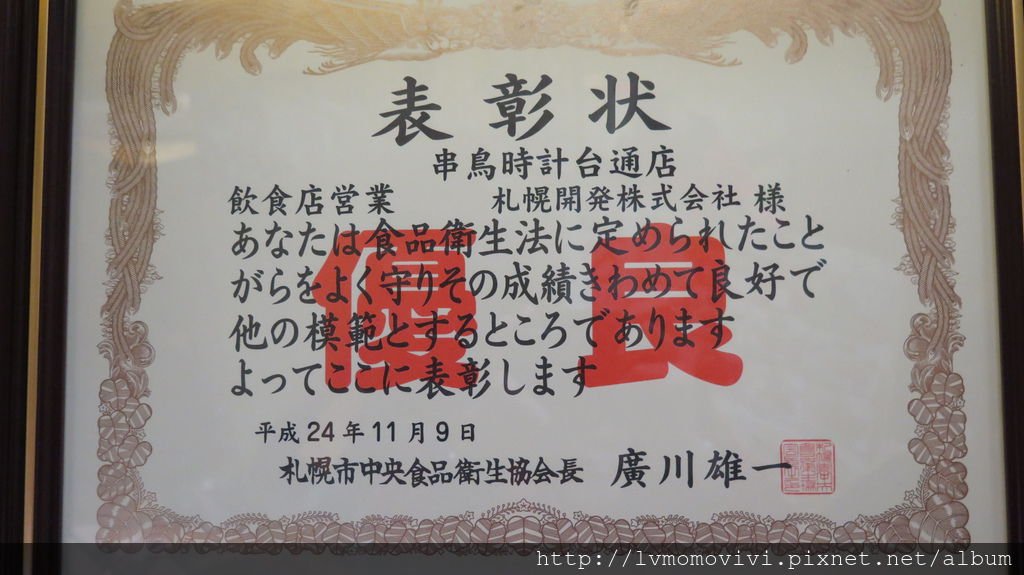 表彰状
串鳥時計台通店
飲食店営業 札幌開発株式会社 様
優良
あなたは食品衛生法に定められたこと
がらをよく守りその成績きわめて良好で
他の模範とするところであります
よってここに表彰します
平成24年11月9日
札幌市中央食品衛生協会長 廣川雄一
http://lvmomovivi.pixnet.net/album